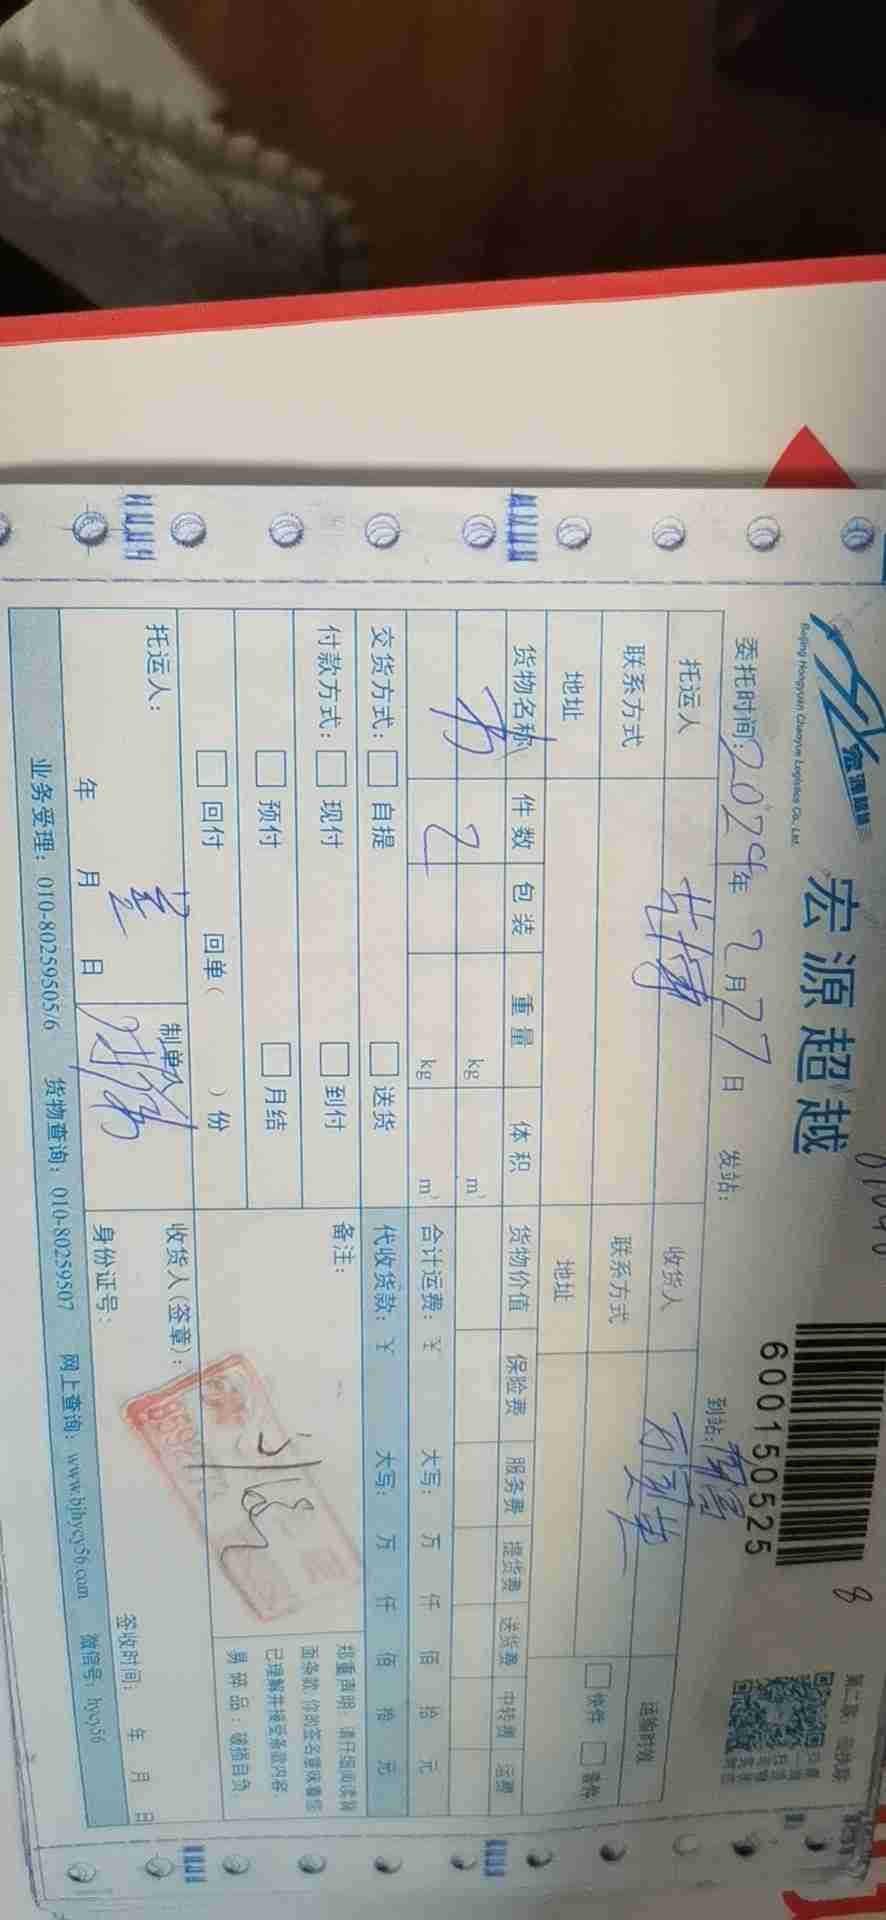 宏源超越
Beijing Hongyuan Chaoyue Logistics Co., Ltd.
宏源超越
600150525
8
委托时间:2024年2月27日 发站: 到站:
托运人 收货人 运输时效
联系方式 联系方式 快件 普件
地址 地址
货物名称 件数 包装 重量 体积 货物价值 保险费 服务费 提货费 送货费 中转费 运费
书 2 kg m³
kg m³ 合计运费:¥ 大写: 万 仟 佰 拾 元
交货方式: 自提 送货 代收货款:¥ 大写: 万 仟 佰 拾 元
付款方式: 现付 到付 备注:
预付 月结
回付 回单( )份
郑重声明:请仔细阅读背
面条款 你的签名意味着您
已理解并接受条款内容.
易碎品:破损自负.
托运人: 制单人 收货人(签章):
年 月 日 身份证号: 签收时间: 年 月 日
业务受理:010-80259505/6 货物查询:010-80259507 网上查询:www.bjhycy56.com 微信号:hycy56